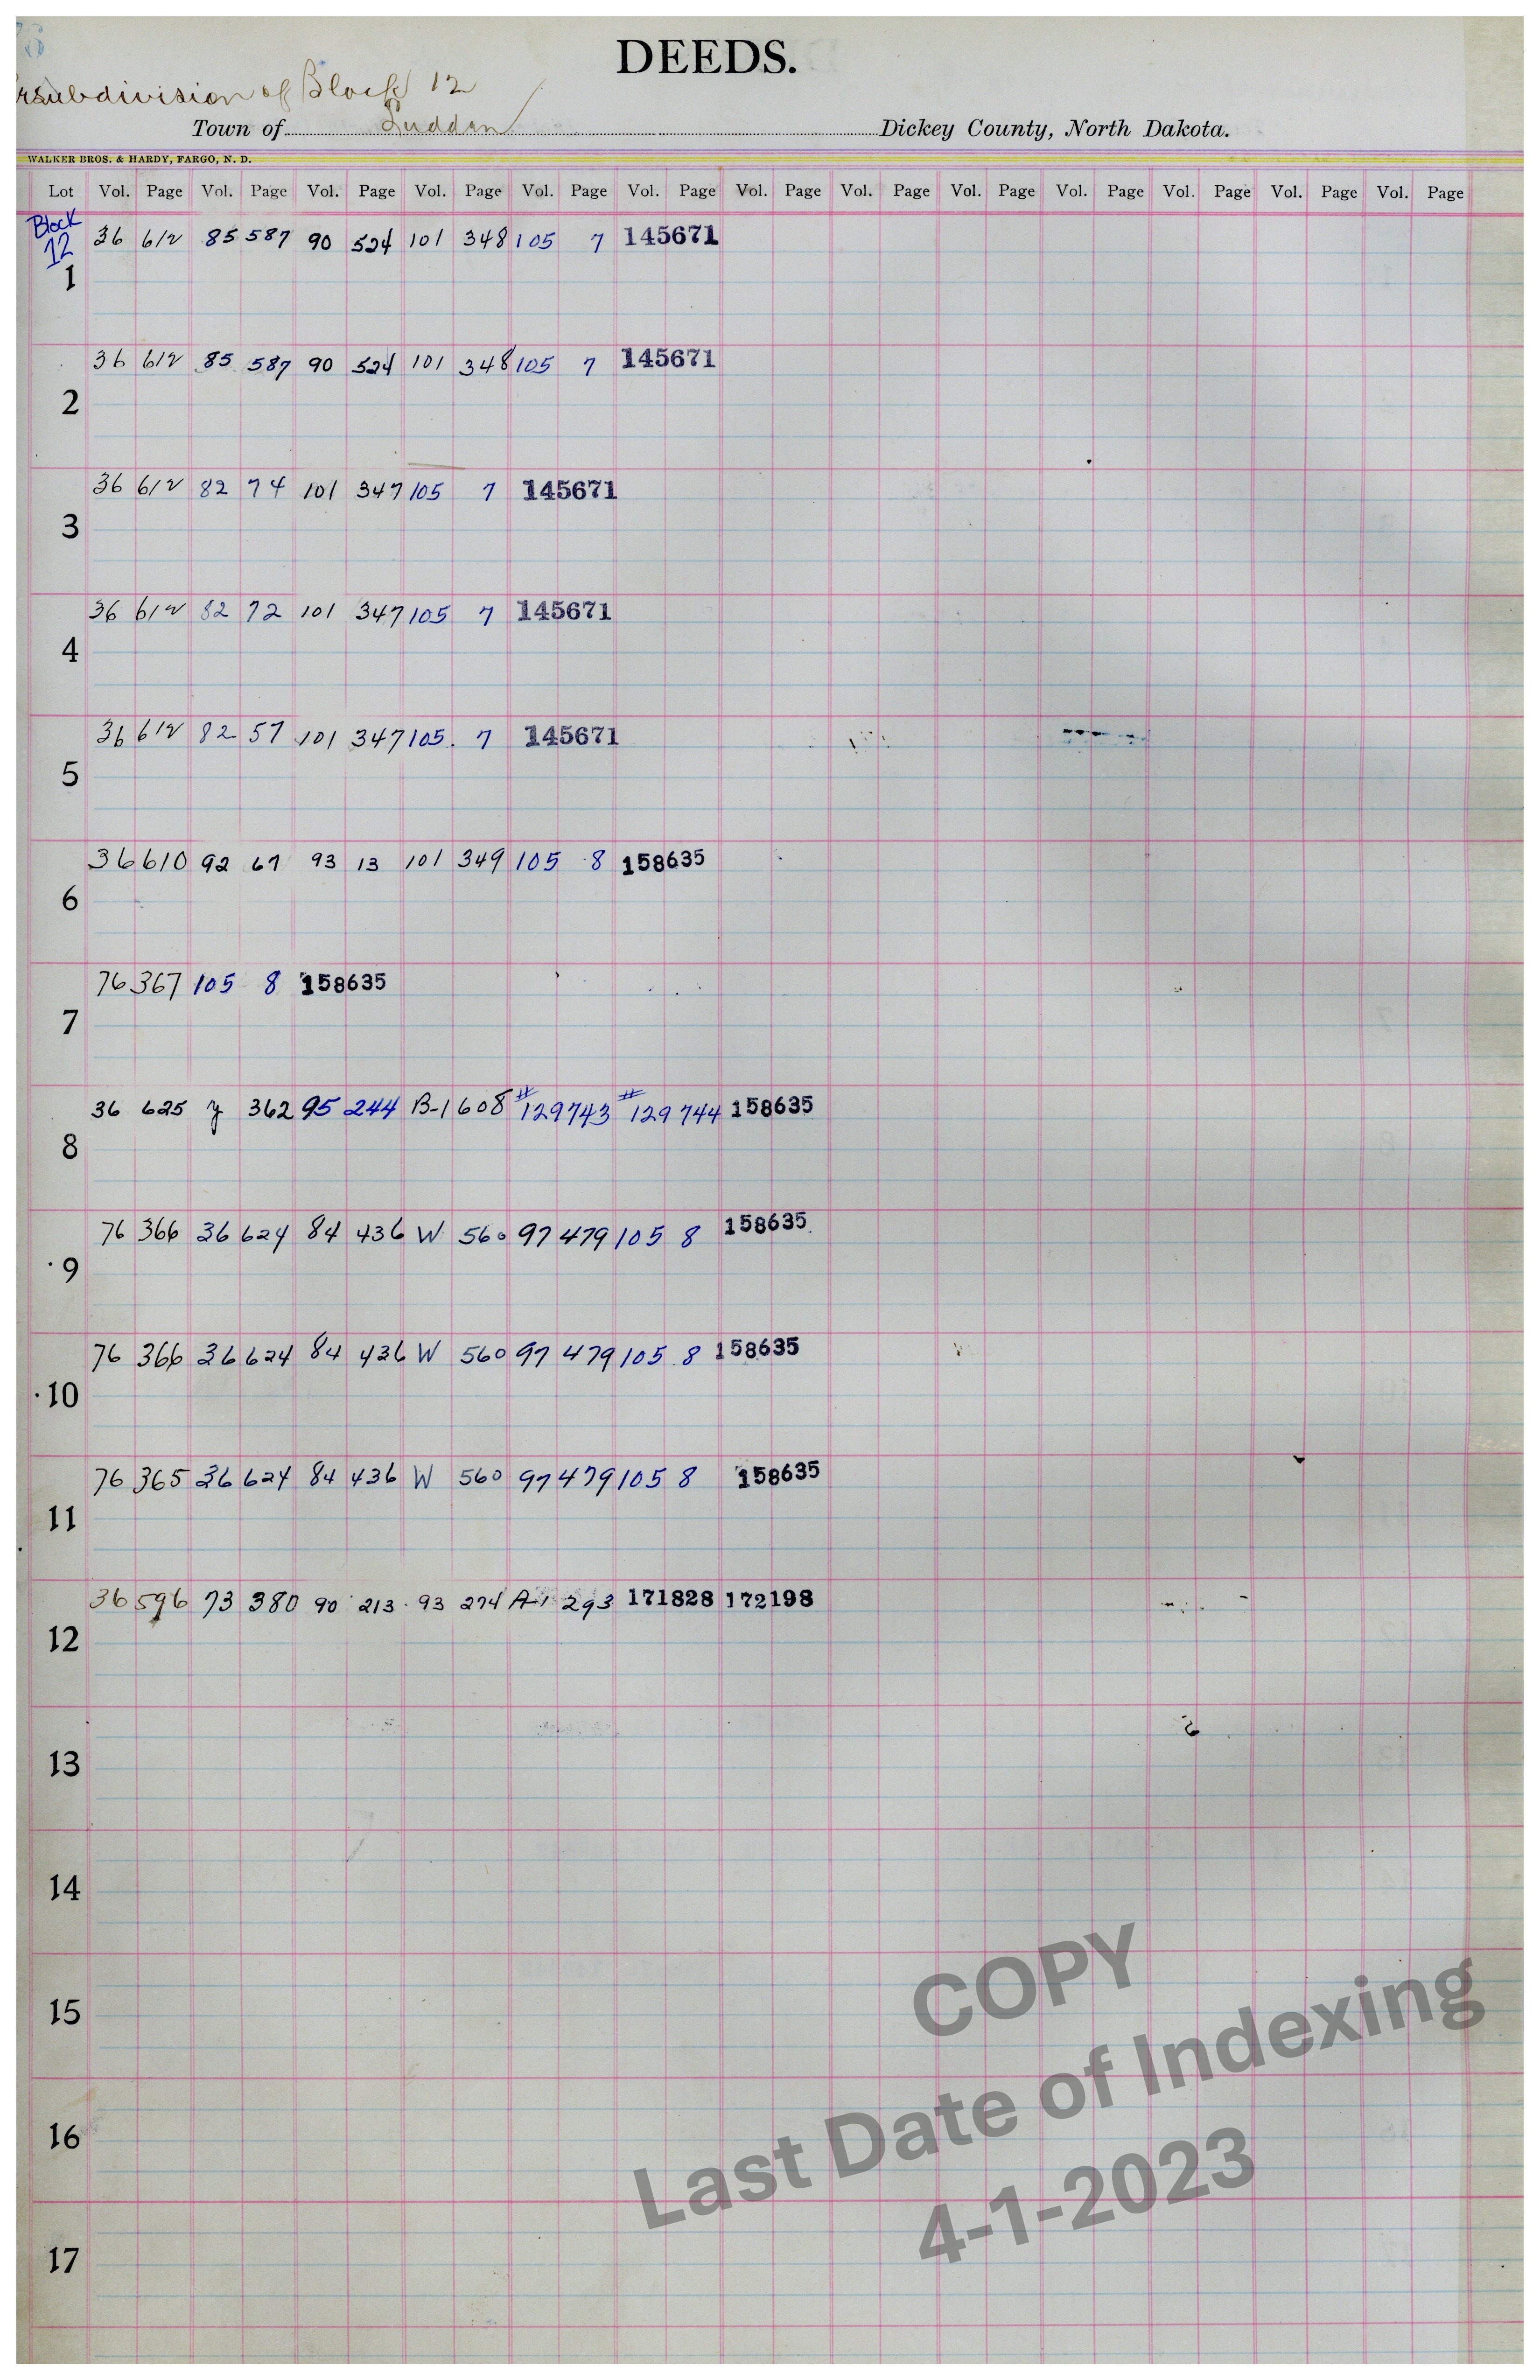 DEEDS.
subdivision of Block 12
Town of Ludden Dickey County, North Dakota.
WALKER BROS. & HARDY, FARGO, N. D.
Lot Vol. Page Vol. Page Vol. Page Vol. Page Vol. Page Vol. Page Vol. Page Vol. Page Vol. Page Vol. Page Vol. Page Vol. Page Vol. Page
Block
12
36 612 85 587 90 524 101 348 105 7 145671
1
36 612 85 587 90 524 101 348 105 7 145671
2
36 612 82 74 101 347 105 7 145671
3
36 612 82 72 101 347 105 7 145671
4
36 612 82 57 101 347 105 7 145671
5
36 610 92 67 93 13 101 349 105 8 158635
6
76 367 105 8 158635
7
36 625 y 362 95 244 B-1 608 #129743 #129744 158635
8
76 366 36 624 84 436 W 560 97 479 105 8 158635
9
76 366 36 624 84 436 W 560 97 479 105 8 158635
10
76 365 36 624 84 436 W 560 97 479 105 8 158635
11
36 596 73 380 90 213 93 274 A-1 293 171828 172198
12
13
14
15
16
17
COPY
Last Date of Indexing
4-1-2023